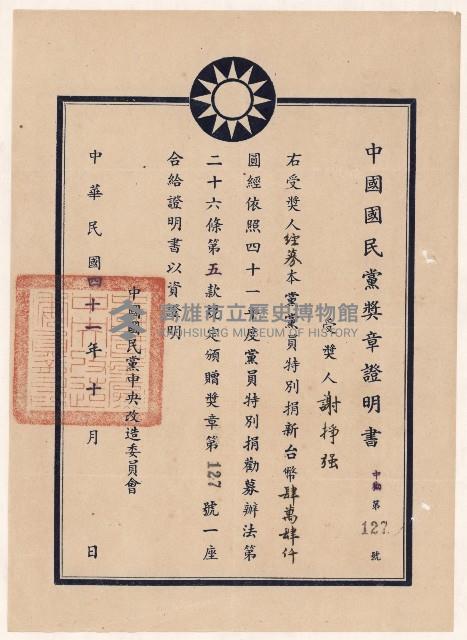 中國國民黨獎章證明書
中勸第127號
受獎人謝掙强
右受獎人經募本黨黨員特別捐新台幣肆萬肆仟
圓經依照四十一年度黨員特別捐勸募辦法第
二十六條第五款規定頒贈獎章第127號一座
合給證明書以資證明
中國國民黨中央改造委員會
中華民國四十一年十月 日
高雄市立歷史博物館
KAOHSIUNG MUSEUM OF HISTORY